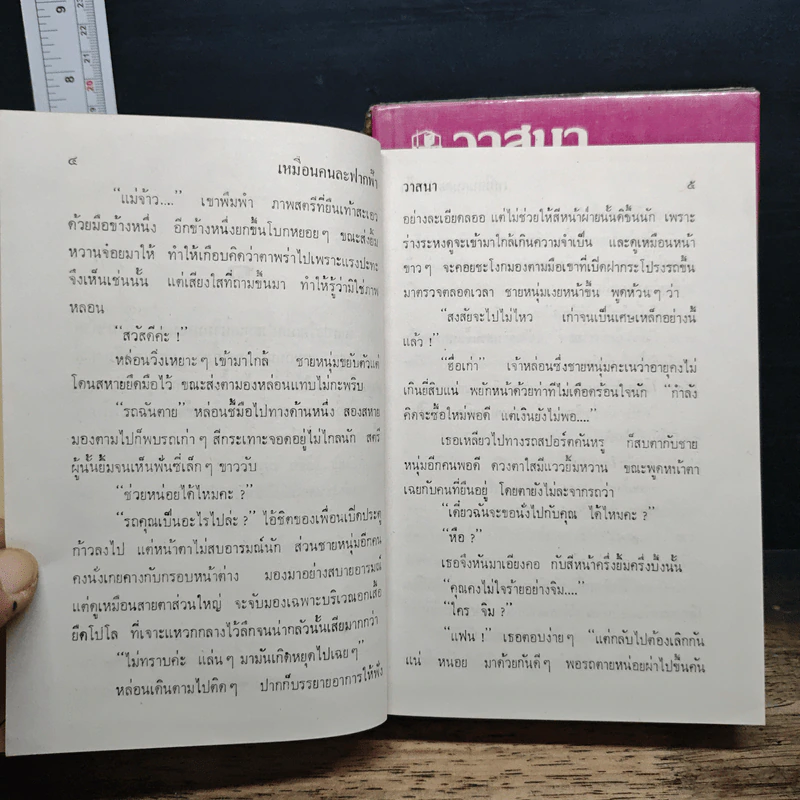 9
20
8
21
วาสนา
๔
เหมือนคนละฟากฟ้า
“แม่จ้าว....” เขาพึมพำ ภาพสตรีที่ยืนเท้าสะเอว
ด้วยมือข้างหนึ่ง อีกข้างหนึ่งยกขึ้นโบกหยอยๆ ขณะส่งยิ้ม
หวานจ๋อยมาให้ ทำให้เกือบคิดว่าตาพร่าไปเพราะแรงปะทะ
จึงเห็นเช่นนั้น แต่เสียงใสที่ถามขึ้นมา ทำให้รู้ว่ามิใช่ภาพ
หลอน
“สวัสดีค่ะ !”
หล่อนวิ่งเหยาะๆ เข้ามาใกล้ ชายหนุ่มขยับตัวแต่
โดนสหายยึดมือไว้ ขณะส่งตามองหล่อนแทบไม่กะพริบ
“รถฉันตาย” หล่อนชี้มือไปทางด้านหนึ่ง สองสหาย
มองตามไปก็พบรถเก่าๆ สีกระเทาะจอดอยู่ไม่ไกลนัก สตรี
ผู้นั้นยิ้มจนเห็นฟันซี่เล็กๆ ขาววับ
“ช่วยหน่อยได้ไหมคะ ?”
“รถคุณเป็นอะไรไปล่ะ ?” ไอ้ชิตของเพื่อนเปิดประตู
ก้าวลงไป แต่หน้าตาไม่สบอารมณ์นัก ส่วนชายหนุ่มอีกคน
คงนั่งเกยคางกับกรอบหน้าต่าง มองมาอย่างสบายอารมณ์
แต่ดูเหมือนสายตาส่วนใหญ่ จะจับมองเฉพาะบริเวณอกเสื้อ
ยืดโปโล ที่เจาะแหวกกลางไว้ลึกจนน่ากลัวนั้นเสียมากกว่า
“ไม่ทราบค่ะ แล่นๆ มามันเกิดหยุดไปเฉยๆ”
หล่อนเดินตามไปติดๆ ปากก็บรรยายอาการให้ฟัง
วาสนา
๕
อย่างละเอียดลออ แต่ไม่ช่วยให้สีหน้าฝ่ายนั้นดีขึ้นนัก เพราะ
ร่างระหงดูจะเข้ามาใกล้เกินความจำเป็น และดูเหมือนหน้า
ขาวๆ จะคอยชะโงกมองตามมือเขาที่เปิดฝากระโปรงรถขึ้น
มาตรวจตลอดเวลา ชายหนุ่มเงยหน้าขึ้น พูดห้วนๆ ว่า
“สงสัยจะไปไม่ไหว เก่าจนเป็นเศษเหล็กอย่างนี้
แล้ว !”
“ฮื่อเก่า” เจ้าหล่อนซึ่งชายหนุ่มคะเนว่าอายุคงไม่
เกินยี่สิบแน่ พยักหน้าด้วยท่าทีไม่เดือดร้อนใจนัก “กำลัง
คิดจะซื้อใหม่พอดี แต่เงินยังไม่พอ....”
เธอเหลียวไปทางรถสปอร์ตคันหรู ก็สบตากับชาย
หนุ่มอีกคนพอดี ดวงตาใสมีแววยิ้มหวาน ขณะพูดหน้าตา
เฉยกับคนที่ยืนอยู่ โดยตายังไม่ละจากรถว่า
“เดี๋ยวฉันจะขอนั่งไปกับคุณ ได้ไหมคะ ?”
“หือ ?”
เธอจึงหันมาเอียงคอ กับสีหน้าครึ่งยิ้มครึ่งบึ้งนั้น
“คุณคงไม่ใจร้ายอย่างจิม....”
“ใคร จิม ?”
“แฟน !” เธอตอบง่ายๆ “แต่กลับไปต้องเลิกกัน
แน่ หนอย มาด้วยกันดีๆ พอรถตายหน่อยผ่าไปขึ้นคัน